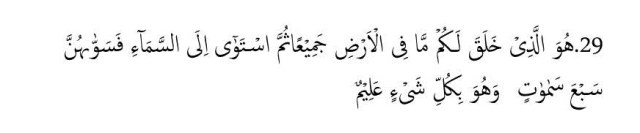 29.هُوَ الَّذِیْ خَلَقَ لَکُمْ مَّا فِی الْاَرْضِ جَمِیْعًاثُمَّ اسْتَوٰۤی اِلَی السَّمَآءِ فَسَوّٰىہُنَّ
سَبْعَ سَمٰوٰتٍ وَھُوَ بِکُلِّ شَیْءٍ عَلِیْمٌ